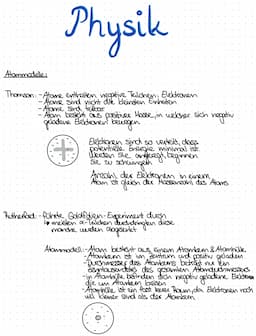 Physik
Atommodelle:
Thomson: - Atome enthalten negative Teilchen: Elektronen
- Atome sind nicht die kleinsten Einheiten
- Atome sind teilbar
- Atom besteht aus positiver Masse, in welcher sich negativ
geladene Elektronen bewegen
Elektronen sind so verteilt, dass
potentielle Energie minimal ist
Werden sie angeregt, beginnen
sie zu schwingen
Anzahl der Elektronen in einem
Atom ist gleich der Massenzahl des Atoms
Rutherford: - Führte Goldfolien-Experiment durch
die meisten α-Teilchen durchdringen diese
manche wurden abgelenkt
Atommodell: - Atom besteht aus einem Atomkern & Atomhülle
- Atomkern ist im Zentrum und positiv geladen
- Durchmesser des Atomkerns beträgt nur ein
des gesamten Atomdurchmessers
- in Atomhülle befinden sich negativ geladene Elektronen
die um Atomkern kreisen
- Atomhülle ist ein fast leerer Raum, da Elektronen noch
viel kleiner sind als der Atomkern